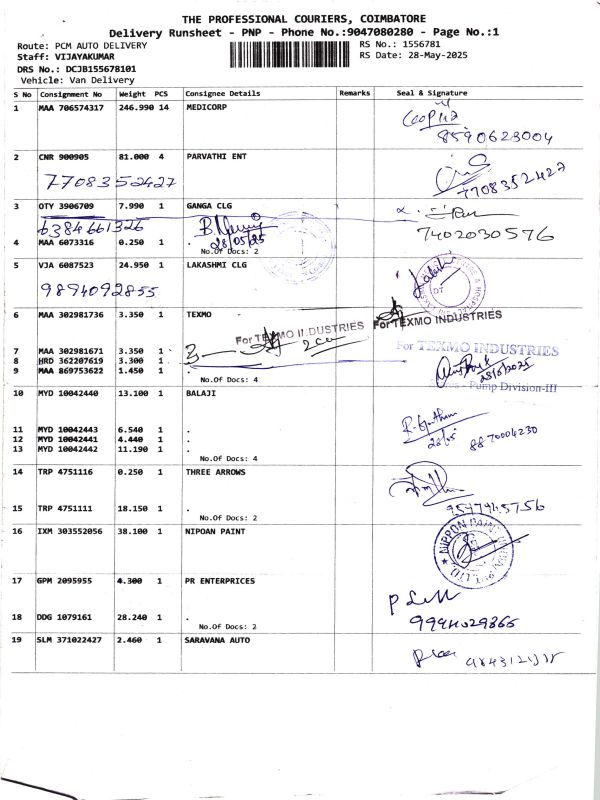 THE PROFESSIONAL COURIERS, COIMBATORE
Delivery Runsheet - PNP - Phone No.:9047080280 - Page No.:1
Route: PCM AUTO DELIVERY
RS No.: 1556781
Staff: VIJAYAKUMAR
RS Date: 28-May-2025
DRS No.: DCJB155678101
Vehicle: Van Delivery
S No Consignment No Weight PCS Consignee Details Remarks Seal & Signature
1 MAA 706574317 246.990 14 MEDICORP
8590623004
2 CNR 900905 81.000 4 PARVATHI ENT
7708352427 7708352427
3 OTY 3906709 7.990 1 GANGA CLG
6384661326 28/05/25 7402030576
4 MAA 6073316 0.250 1 .
No.Of Docs: 2
5 VJA 6087523 24.950 1 LAKASHMI CLG
9894092855
6 MAA 302981736 3.350 1 TEXMO
For TEXMO INDUSTRIES For TEXMO INDUSTRIES
7 MAA 302981671 3.350 1 .
For TEXMO INDUSTRIES
8 HRD 362207619 1.300 1 .
9 MAA 869753622 1.450 1 .
28/5/2025
No.Of Docs: 4
Pump Division-III
10 MYD 10042440 13.100 1 BALAJI
11 MYD 10042443 6.540 1 .
28/05 8870004230
12 MYD 10042441 4.440 1 .
13 MYD 10042442 11.190 1 .
No.Of Docs: 4
14 TRP 4751116 0.250 1 THREE ARROWS
15 TRP 4751111 18.150 1 .
No.Of Docs: 2
16 IXM 303552056 38.100 1 NIPOAN PAINT
17 GPM 2095955 4.300 1 PR ENTERPRICES
18 DDG 1079161 28.240 1 .
No.Of Docs: 2
19 SLM 371022427 2.460 1 SARAVANA AUTO